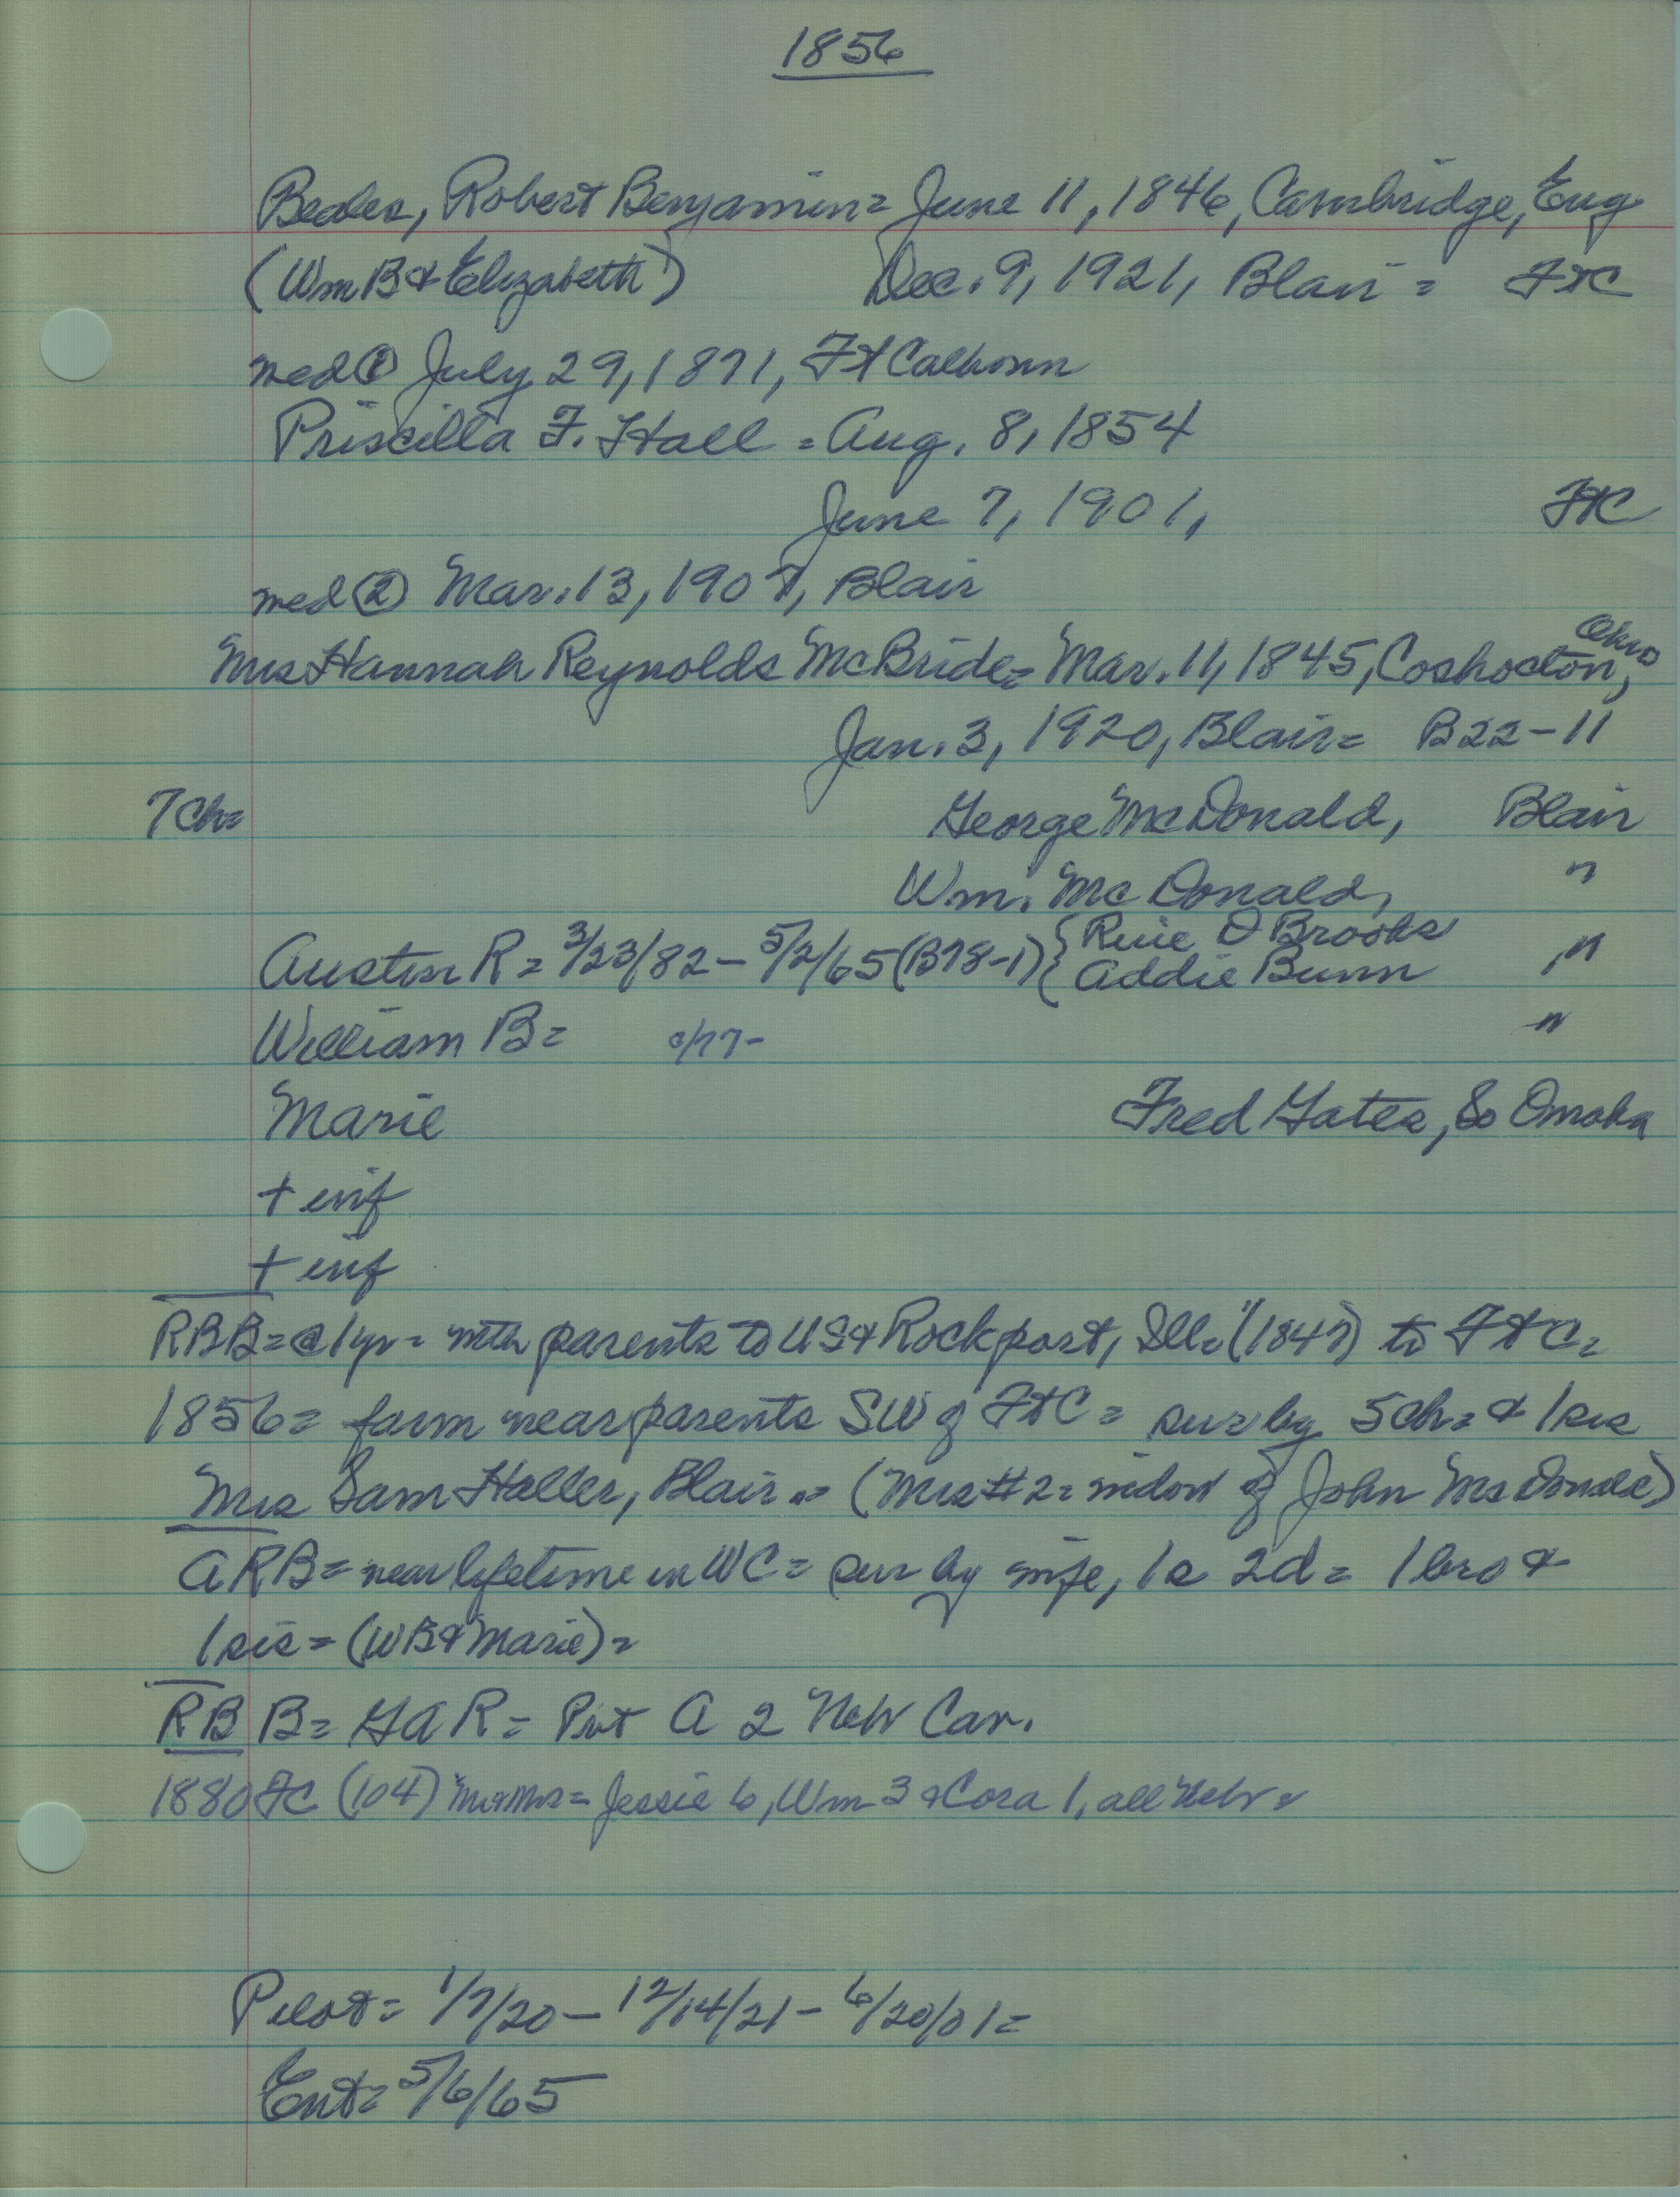 1856
Beales, Robert Benjamin = June 11, 1846, Cambridge, Eng
(Wm B & Elizabeth) Dec. 9, 1921, Blair = FtC
med ① July 29, 1871, Ft Calhoun
Priscilla F. Hall = Aug. 8, 1854
June 7, 1901, FtC
med ② Mar. 13, 1907, Blair
Mrs Hannah Reynolds McBride = Mar. 11, 1845, Coshocton, Ohio
Jan. 3, 1920, Blair = B22-11
7 Ch= George McDonald, Blair
Wm. McDonald, "
Austin R = 3/23/82 - 5/2/65 (B78-1) { Ruie D Brooks "
Addie Bunn
William B = c/77- "
Marie Fred Gates, So Omaha
+ inf
+ inf
RBB = @ 1 yr = with parents to US & Rockport, Ill = (1847) to Ft C =
1856 = farm near parents SW of FtC = sur by 5 ch = & 1 sis
Mrs Sam Haller, Blair = (Mrs #2 = widow of John McDonald)
ARB = near lifetime in WC = sur by wife, 1s 2d = 1 bro &
1 sis = (WB & Marie) =
RBB = GAR = Pvt A 2 Neb Cav.
1880 FC (104) Mr & Mrs = Jessie 6, Wm 3 & Cora 1, all Neb =
Pilot = 1/7/20 - 12/14/21 - 6/20/01 =
Ent = 5/6/65